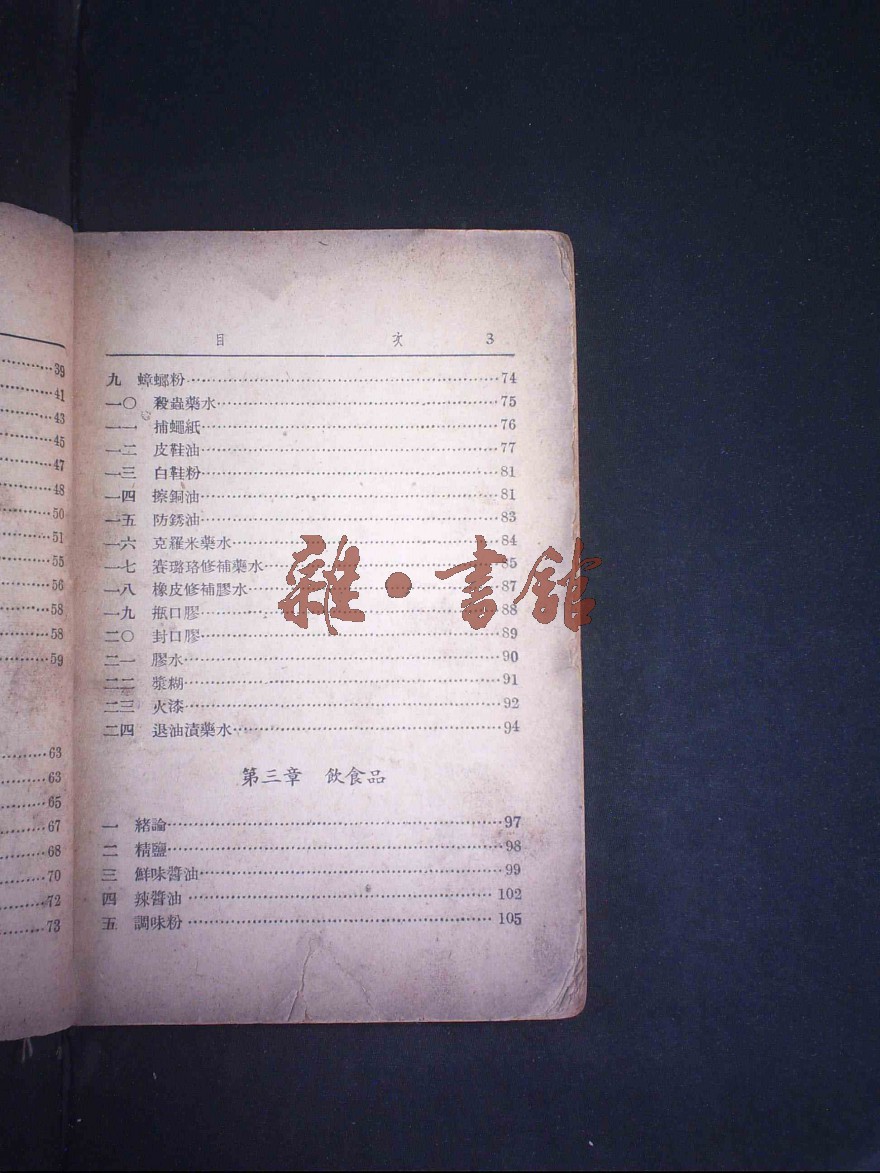 39
41
43
45
47
48
50
51
55
56
58
58
59
63
63
65
67
68
70
72
73
目 次 3
九 蟑螂粉 74
一〇 殺蟲藥水 75
一一 捕蠅紙 76
一二 皮鞋油 77
一三 白鞋粉 81
一四 擦銅油 81
一五 防銹油 83
一六 克羅米藥水 84
一七 賽璐珞修補藥水 85
一八 橡皮修補膠水 87
一九 瓶口膠 88
二〇 封口膠 89
二一 膠水 90
二二 漿糊 91
二三 火漆 92
二四 退油漬藥水 94
第三章 飲食品
一 緒論 97
二 精鹽 98
三 鮮味醬油 99
四 辣醬油 102
五 調味粉 105
雜·書館